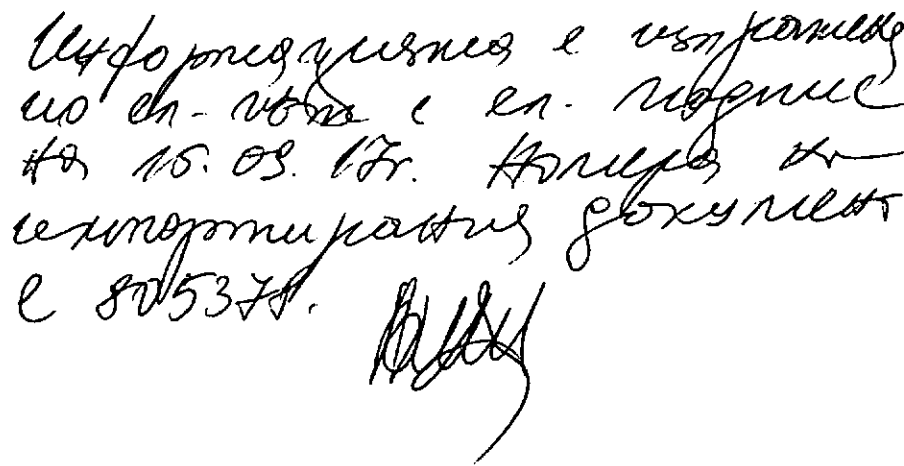 Информацията е изпратена
по ел. път с ел. подпис
на 15.09.17г. Номера на
импортирания документ
е 805378.